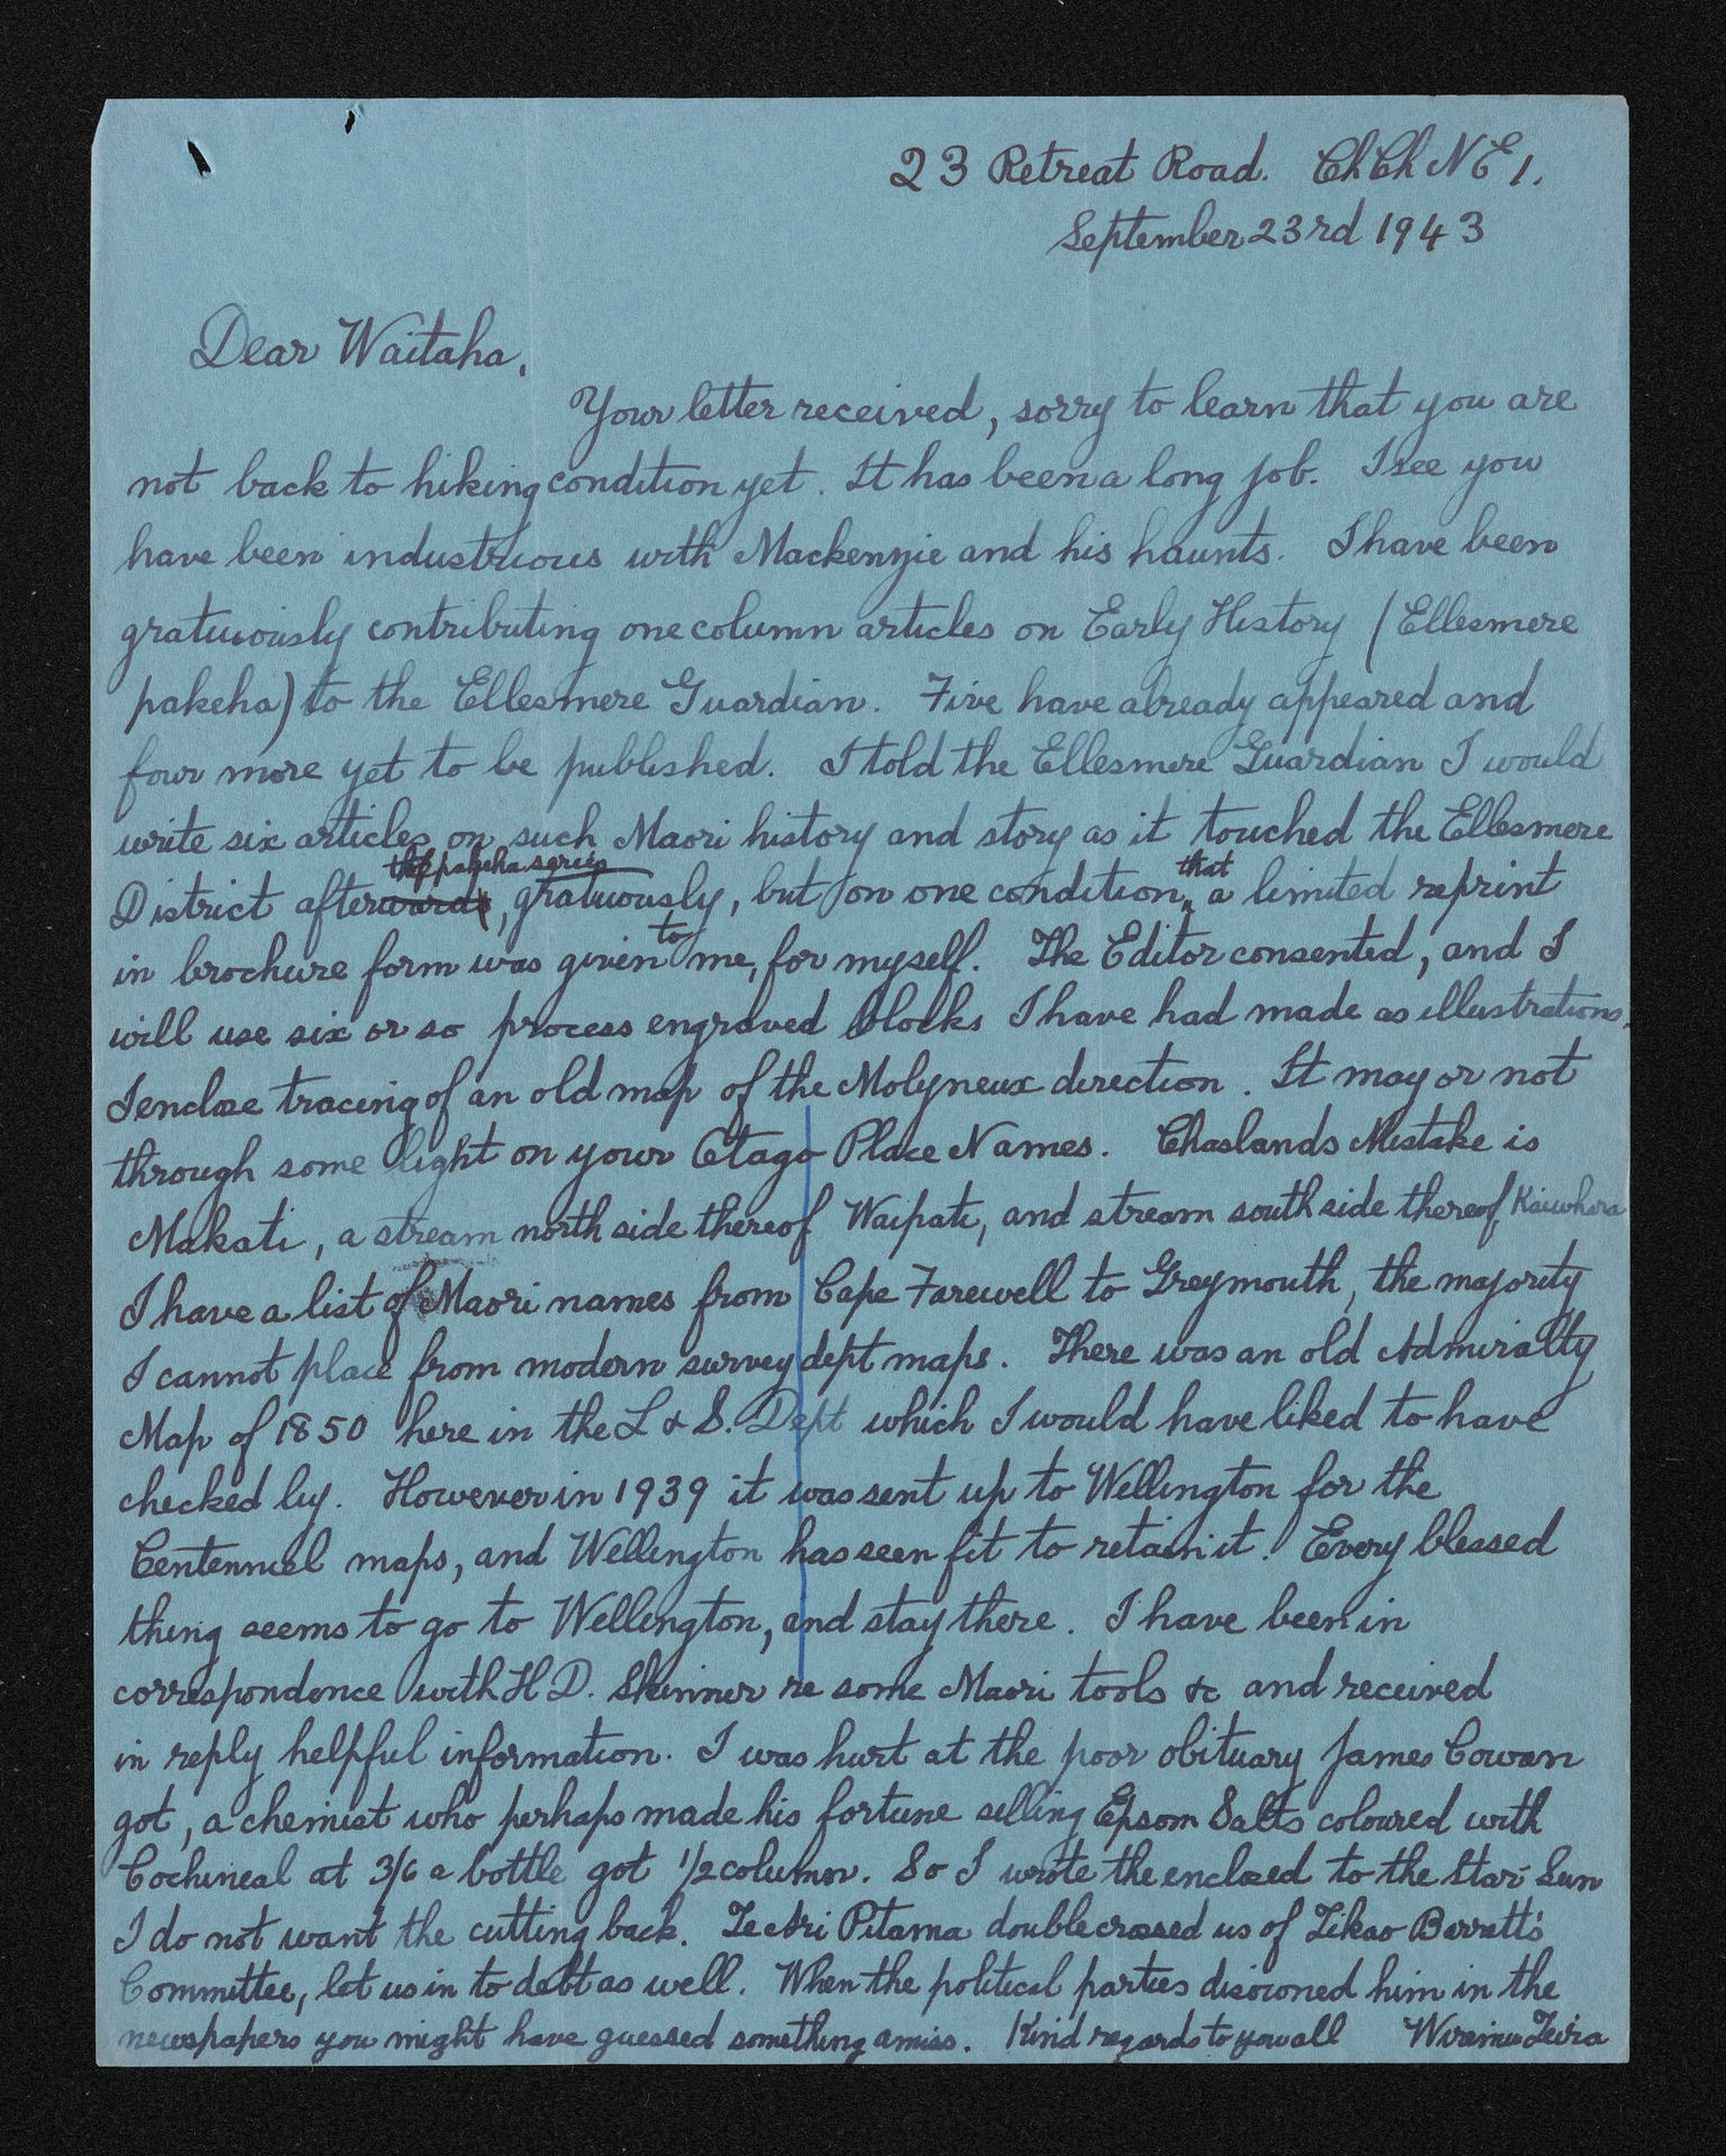 23 Retreat Road. ChCh NE 1.
September 23rd 1943
Dear Waitaha,
Your letter received, sorry to learn that you are
not back to hiking condition yet. It has been a long job. I see you
have been industrious with Mackenzie and his haunts. I have been
gratuiously contributing one column articles on Early History (Ellesmere
pakeha) to the Ellesmere Guardian. Five have already appeared and
four more yet to be published. I told the Ellesmere Guardian I would
write six articles on such Maori history and story as it touched the Ellesmere
the pakeha series that
District afterwards, gratuously, but on one condition, a limited reprint
to
in brochure form was given me, for myself. The Editor consented, and I
will use six or so process engraved blocks I have had made as illustrations.
I enclose tracing of an old map of the Molyneux direction. It may or not
through some light on your Otago Place Names. Chaslands Mistake is
Makati, a stream north side thereof Waipati, and stream south side thereof,
I have a list of Maori names from Cape Farewell to Greymouth, the majority
I cannot place from modern survey dept maps. There was an old Admiralty
Map of 1850 here in the L & S. Dept which I would have liked to have
checked by. However in 1939 it was sent up to Wellington for the
Centennial maps, and Wellington has seen fit to retain it! Every blessed
thing seems to go to Wellington, and stay there. I have been in
correspondence with H D. Skinner re some Maori tools &c and received
in reply helpful information. I was hurt at the poor obituary James Cowan
got, a chemist who perhaps made his fortune selling Epsom Salts coloured with
Cochineal at 3/6 a bottle got 1/2 column. So I wrote the enclosed to the Star-Sun
I do not want the cutting back. Te Ari Pitama doublecrossed us of Tikao Barratt's
Committee, let us in to debt as well. When the political parties disowned him in the
newspapers you might have guessed something amiss. Kind regards to you all Wiremu Teira